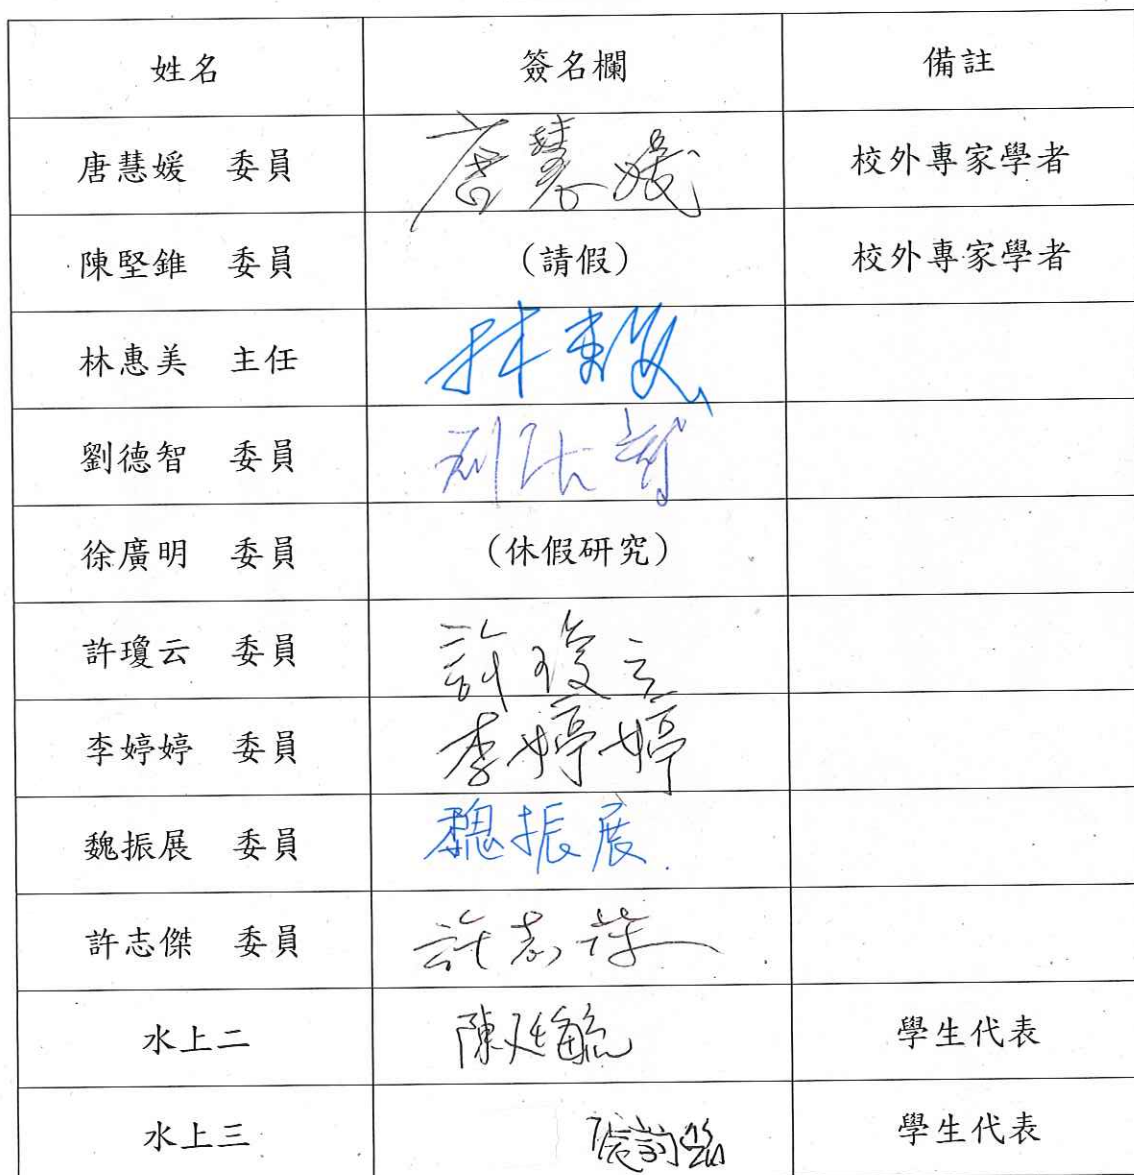 姓名 簽名欄 備註
唐慧媛 委員 唐慧媛 校外專家學者
陳堅錐 委員 (請假) 校外專家學者
林惠美 主任 林惠美
劉德智 委員 刘德智
徐廣明 委員 (休假研究)
許瓊云 委員 許瓊云
李婷婷 委員 李婷婷
魏振展 委員 魏振展
許志傑 委員 許志傑
水上二 陳廷毓 學生代表
水上三 學生代表